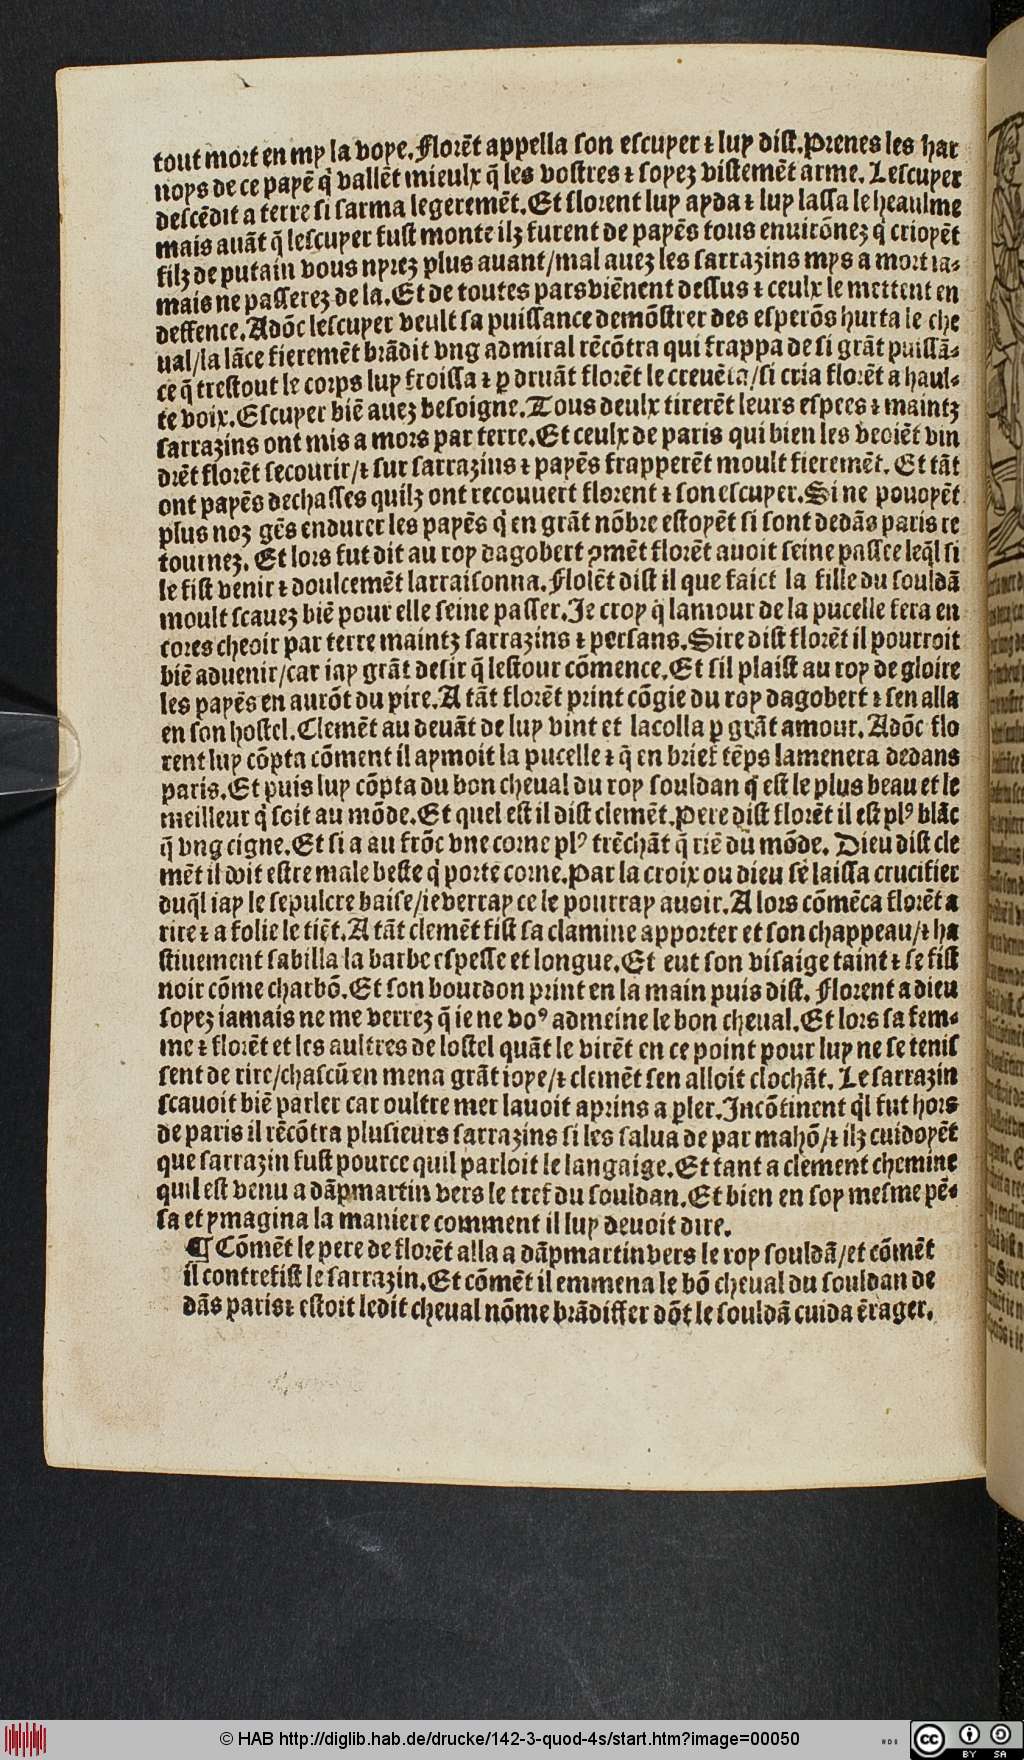 tout mort en my la voye. Florēt appella son escuyer ⁊ luy dist. Prenes les har
noys de ce payē q̇ vallēt mieulx q̄ les vostres ⁊ soyez vistemēt arme. Lescuyer
descēdit a terre si sarma legeremēt. Et florent luy ayda ⁊ luy lassa le heaulme
mais auāt q̄ lescuyer fust monte ilz furent de payēs tous enuirōnez q̇ crioyēt
filz de putain vous nyrez plus auant/mal auez les sarrazins mys a mort ia⸗
mais ne passerez de la. Et de toutes pars viēnent dessus ⁊ ceulx le mettent en
deffence. Adōc lescuyer veult sa puissance demōstrer des esperōs hurta le che
ual/la lāce fieremēt brādit vng admiral rēcōtra qui frappa de si grāt puissā⸗
ce q̄ trestout le corps luy froissa ⁊ ꝑ druāt florēt le creuēta/si cria florēt a haul⸗
te voix. Escuyer biē auez besoigne. Tous deulx tirerēt leurs espees ⁊ maintz
sarrazins ont mis a mors par terre. Et ceulx de paris qui bien les veoiēt vin
drēt florēt secourir/⁊ sur sarrazins ⁊ payēs frapperēt moult fieremēt. Et tāt
ont payēs dechasses quilz ont recouuert florent ⁊ son escuyer. Si ne pouoyēt
plus noz gēs endurer les payēs q̇ en grāt nōbre estoyēt si sont dedās paris re
tournez. Et lors fut dit au roy dagobert ꝯmēt florēt auoit seine passee leq̄l si
le fist venir ⁊ doulcemēt larraisonna. Flolēt dist il que faict la fille du souldā
moult scauez biē pour elle seine passer. Je croy q̄ lamour de la pucelle fera en
cores cheoir par terre maintz sarrazins ⁊ persans. Sire dist florēt il pourroit
biē aduenir/car iay grāt desir q̄ lestour cōmence. Et sil plaist au roy de gloire
les payēs en aurōt du pire. A tāt florēt print cōgie du roy dagobert ⁊ sen alla
en son hostel. Clemēt au deuāt de luy vint et lacolla ꝑ grāt amour. Adōc flo
rent luy cōpta cōment il aymoit la pucelle ⁊ q̄ en brief tēps lamenera dedans
paris. Et puis luy cōpta du bon cheual du roy souldan q̇ est le plus beau et le
meilleur q̇ soit au mōde. Et quel est il dist clemēt. Pere dist florēt il est plꝰ blāc
q̄ vng cigne. Et si a au frōc vne corne plꝰ trēchāt q̄ riē du mōde. Dieu dist cle
mēt il doit estre male beste q̇ porte corne. Par la croix ou dieu se laissa crucifier
duq̄l iay le sepulcre baise/ie verray ce le pourray auoir. A lors cōmēca florēt a
rire ⁊ a folie le tiēt. A tāt clemēt fist sa clamine apporter et son chappeau/⁊ ha
stiuement sabilla la barbe espesse et longue. Et eut son visaige taint ⁊ se fist
noir cōme charbō. Et son bourdon print en la main puis dist. Florent a dieu
soyez iamais ne me verrez q̄ ie ne voꝰ admeine le bon cheual. Et lors sa fem⸗
me ⁊ florēt et les aultres de lostel quāt le virēt en ce point pour luy ne se tenis
sent de rire/chascū en mena grāt ioye/⁊ clemēt sen alloit clochāt. Le sarrazin
scauoit biē parler car oultre mer lauoit aprins a ꝑler. Incōtinent q̇l fut hors
de paris il rēcōtra plusieurs sarrazins si les salua de par mahō/⁊ ilz cuidoyēt
que sarrazin fust pource quil parloit le langaige. Et tant a clement chemine
quil est venu a dāpmartin vers le tref du souldan. Et bien en soy mesme pē⸗
sa et ymagina la maniere comment il luy deuoit dire.
¶ Cōmēt le pere de florēt alla a dāpmartin vers le roy souldā/et cōmēt
il contrefist le sarrazin. Et cōmēt il emmena le bō cheual du souldan de
dās paris ⁊ estoit ledit cheual nōme brādiffer dōt le souldā cuida ērager.
© HAB http://diglib.hab.de/drucke/142-3-quod-4s/start.htm?image=00050
cc BY SA